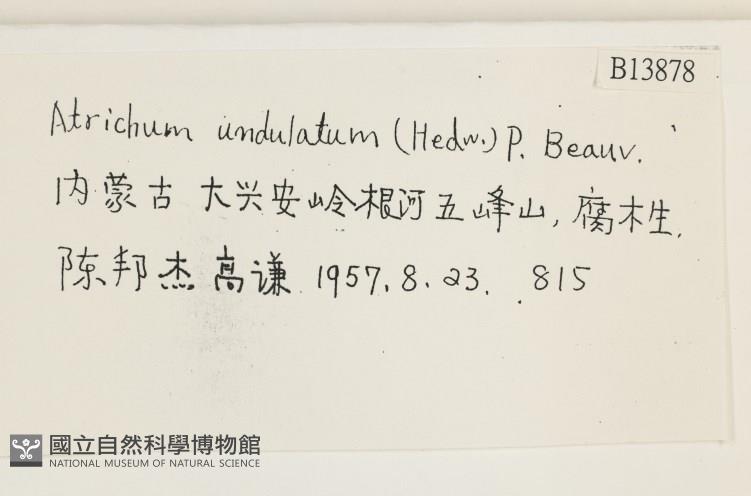 B13878
Atrichum undulatum (Hedw.) P. Beauv.
内蒙古 大兴安岭根河五峰山, 腐木生.
陈邦杰 高谦 1957. 8. 23. 815
國立自然科學博物館
NATIONAL MUSEUM OF NATURAL SCIENCE